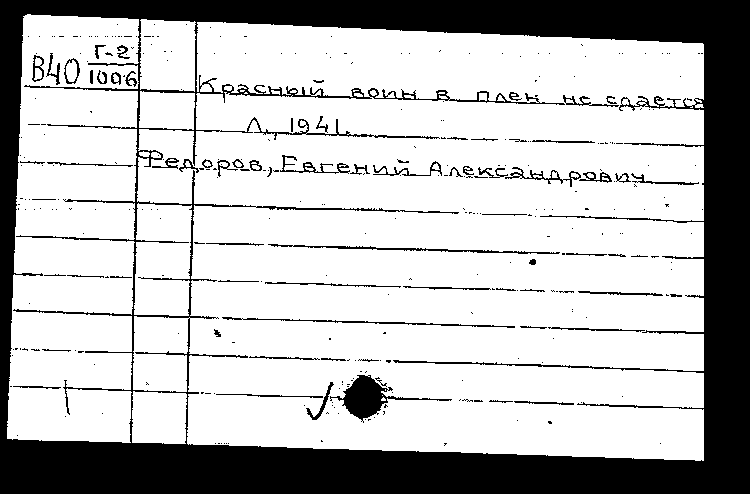 В40 Г-2/1006
Красный воин в плен не сдается
Л., 1941.
Федоров, Евгений Александрович